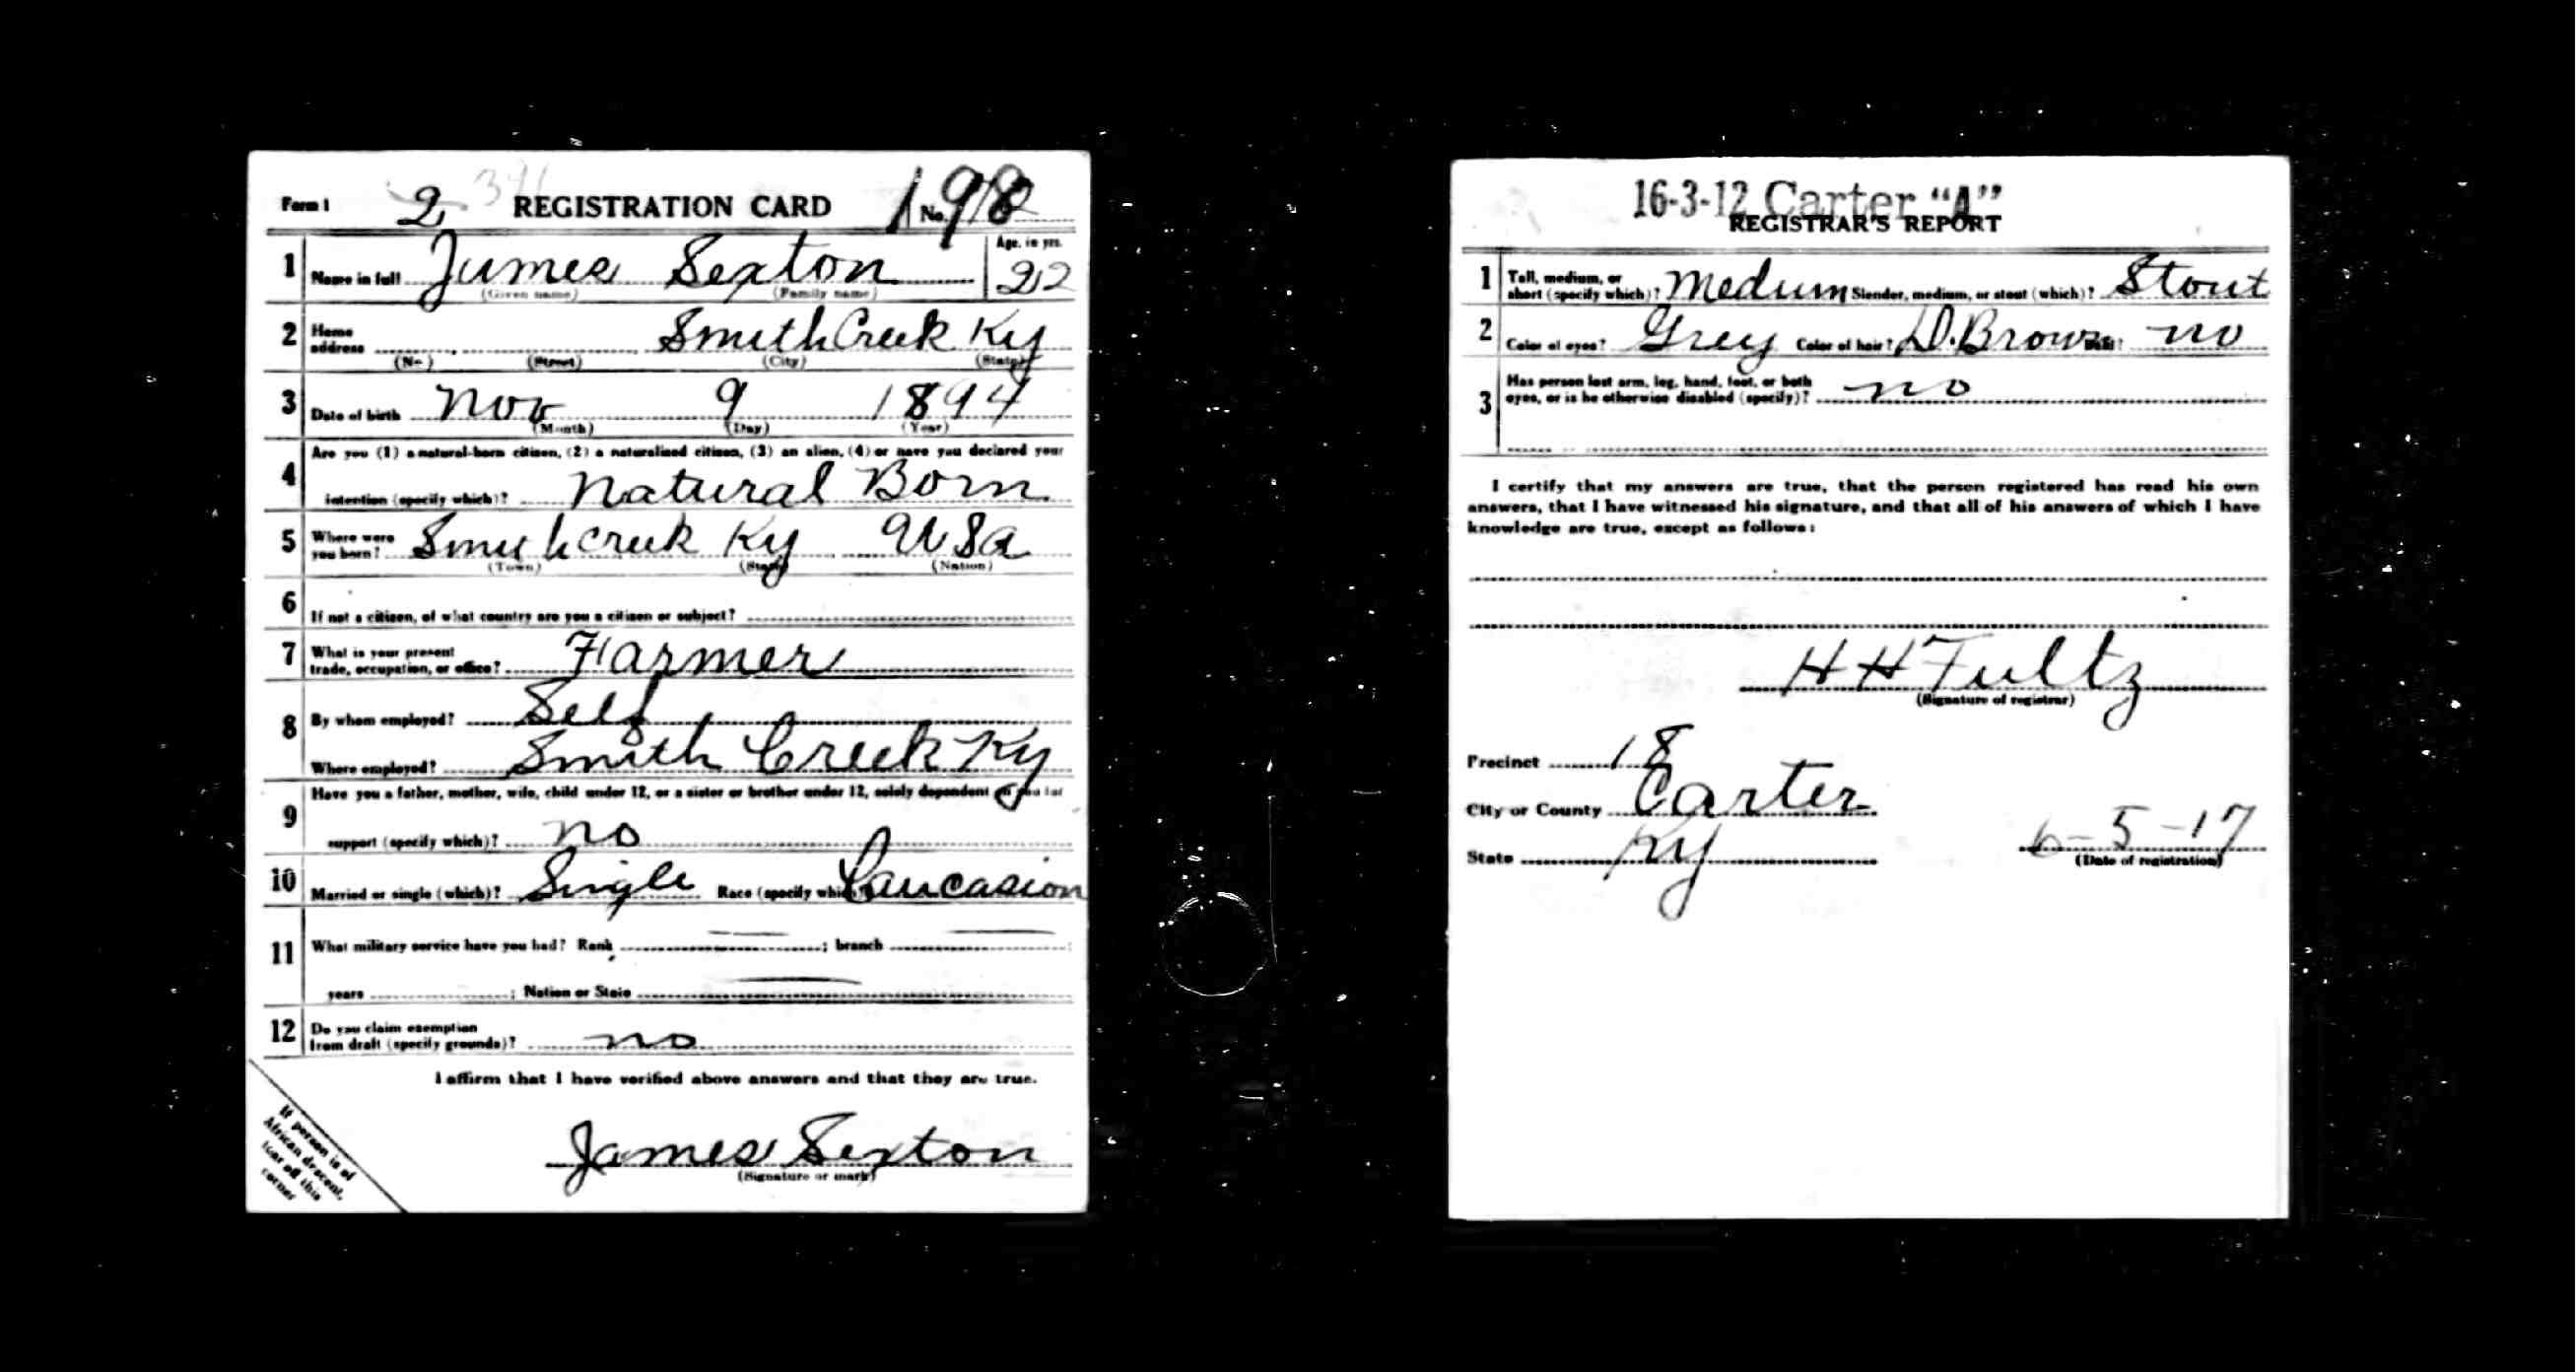 Form 1 2 341 REGISTRATION CARD No. 198
1 Name in full James Sexton Age, in yrs. 22
(Given name) (Family name)
2 Home address Smith Creek Ky
(No.) (Street) (City) (State)
3 Date of birth Nov 9 1894
(Month) (Day) (Year)
4 Are you (1) a natural-born citizen, (2) a naturalized citizen, (3) an alien, (4) or have you declared your
intention (specify which)? Natural Born
5 Where were you born? Smithcreek Ky USA
(Town) (State) (Nation)
6 If not a citizen, of what country are you a citizen or subject?
7 What is your present trade, occupation, or office? Farmer
8 By whom employed? Self
Where employed? Smith Creek Ky
9 Have you a father, mother, wife, child under 12, or a sister or brother under 12, solely dependent on you for
support (specify which)? no
10 Married or single (which)? Single Race (specify which)? Caucasion
11 What military service have you had? Rank ; branch
years ; Nation or State
12 Do you claim exemption from draft (specify grounds)? no
I affirm that I have verified above answers and that they are true.
James Sexton
(Signature or mark)
If person is of
African descent,
tear off this
corner
16-3-12 Carter "A"
REGISTRAR'S REPORT
1 Tall, medium, or short (specify which)? Medium Slender, medium, or stout (which)? Stout
2 Color of eyes? Grey Color of hair? D. Brown Bald? no
3 Has person lost arm, leg, hand, foot, or both
eyes, or is he otherwise disabled (specify)? no
I certify that my answers are true, that the person registered has read his own
answers, that I have witnessed his signature, and that all of his answers of which I have
knowledge are true, except as follows:
H H Fultz
(Signature of registrar)
Precinct 18
City or County Carter
State Ky 6-5-17
(Date of registration)